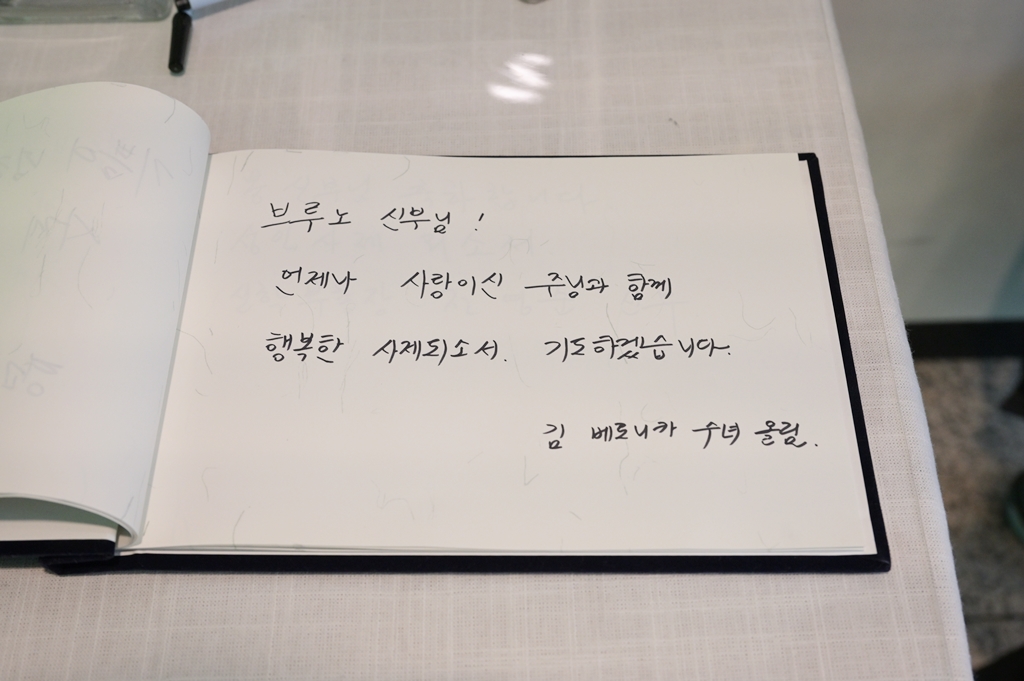 브루노 신부님 !
언제나 사랑이신 주님과 함께
행복한 사제되소서. 기도하겠습니다.
김 베로니카 수녀 올림.